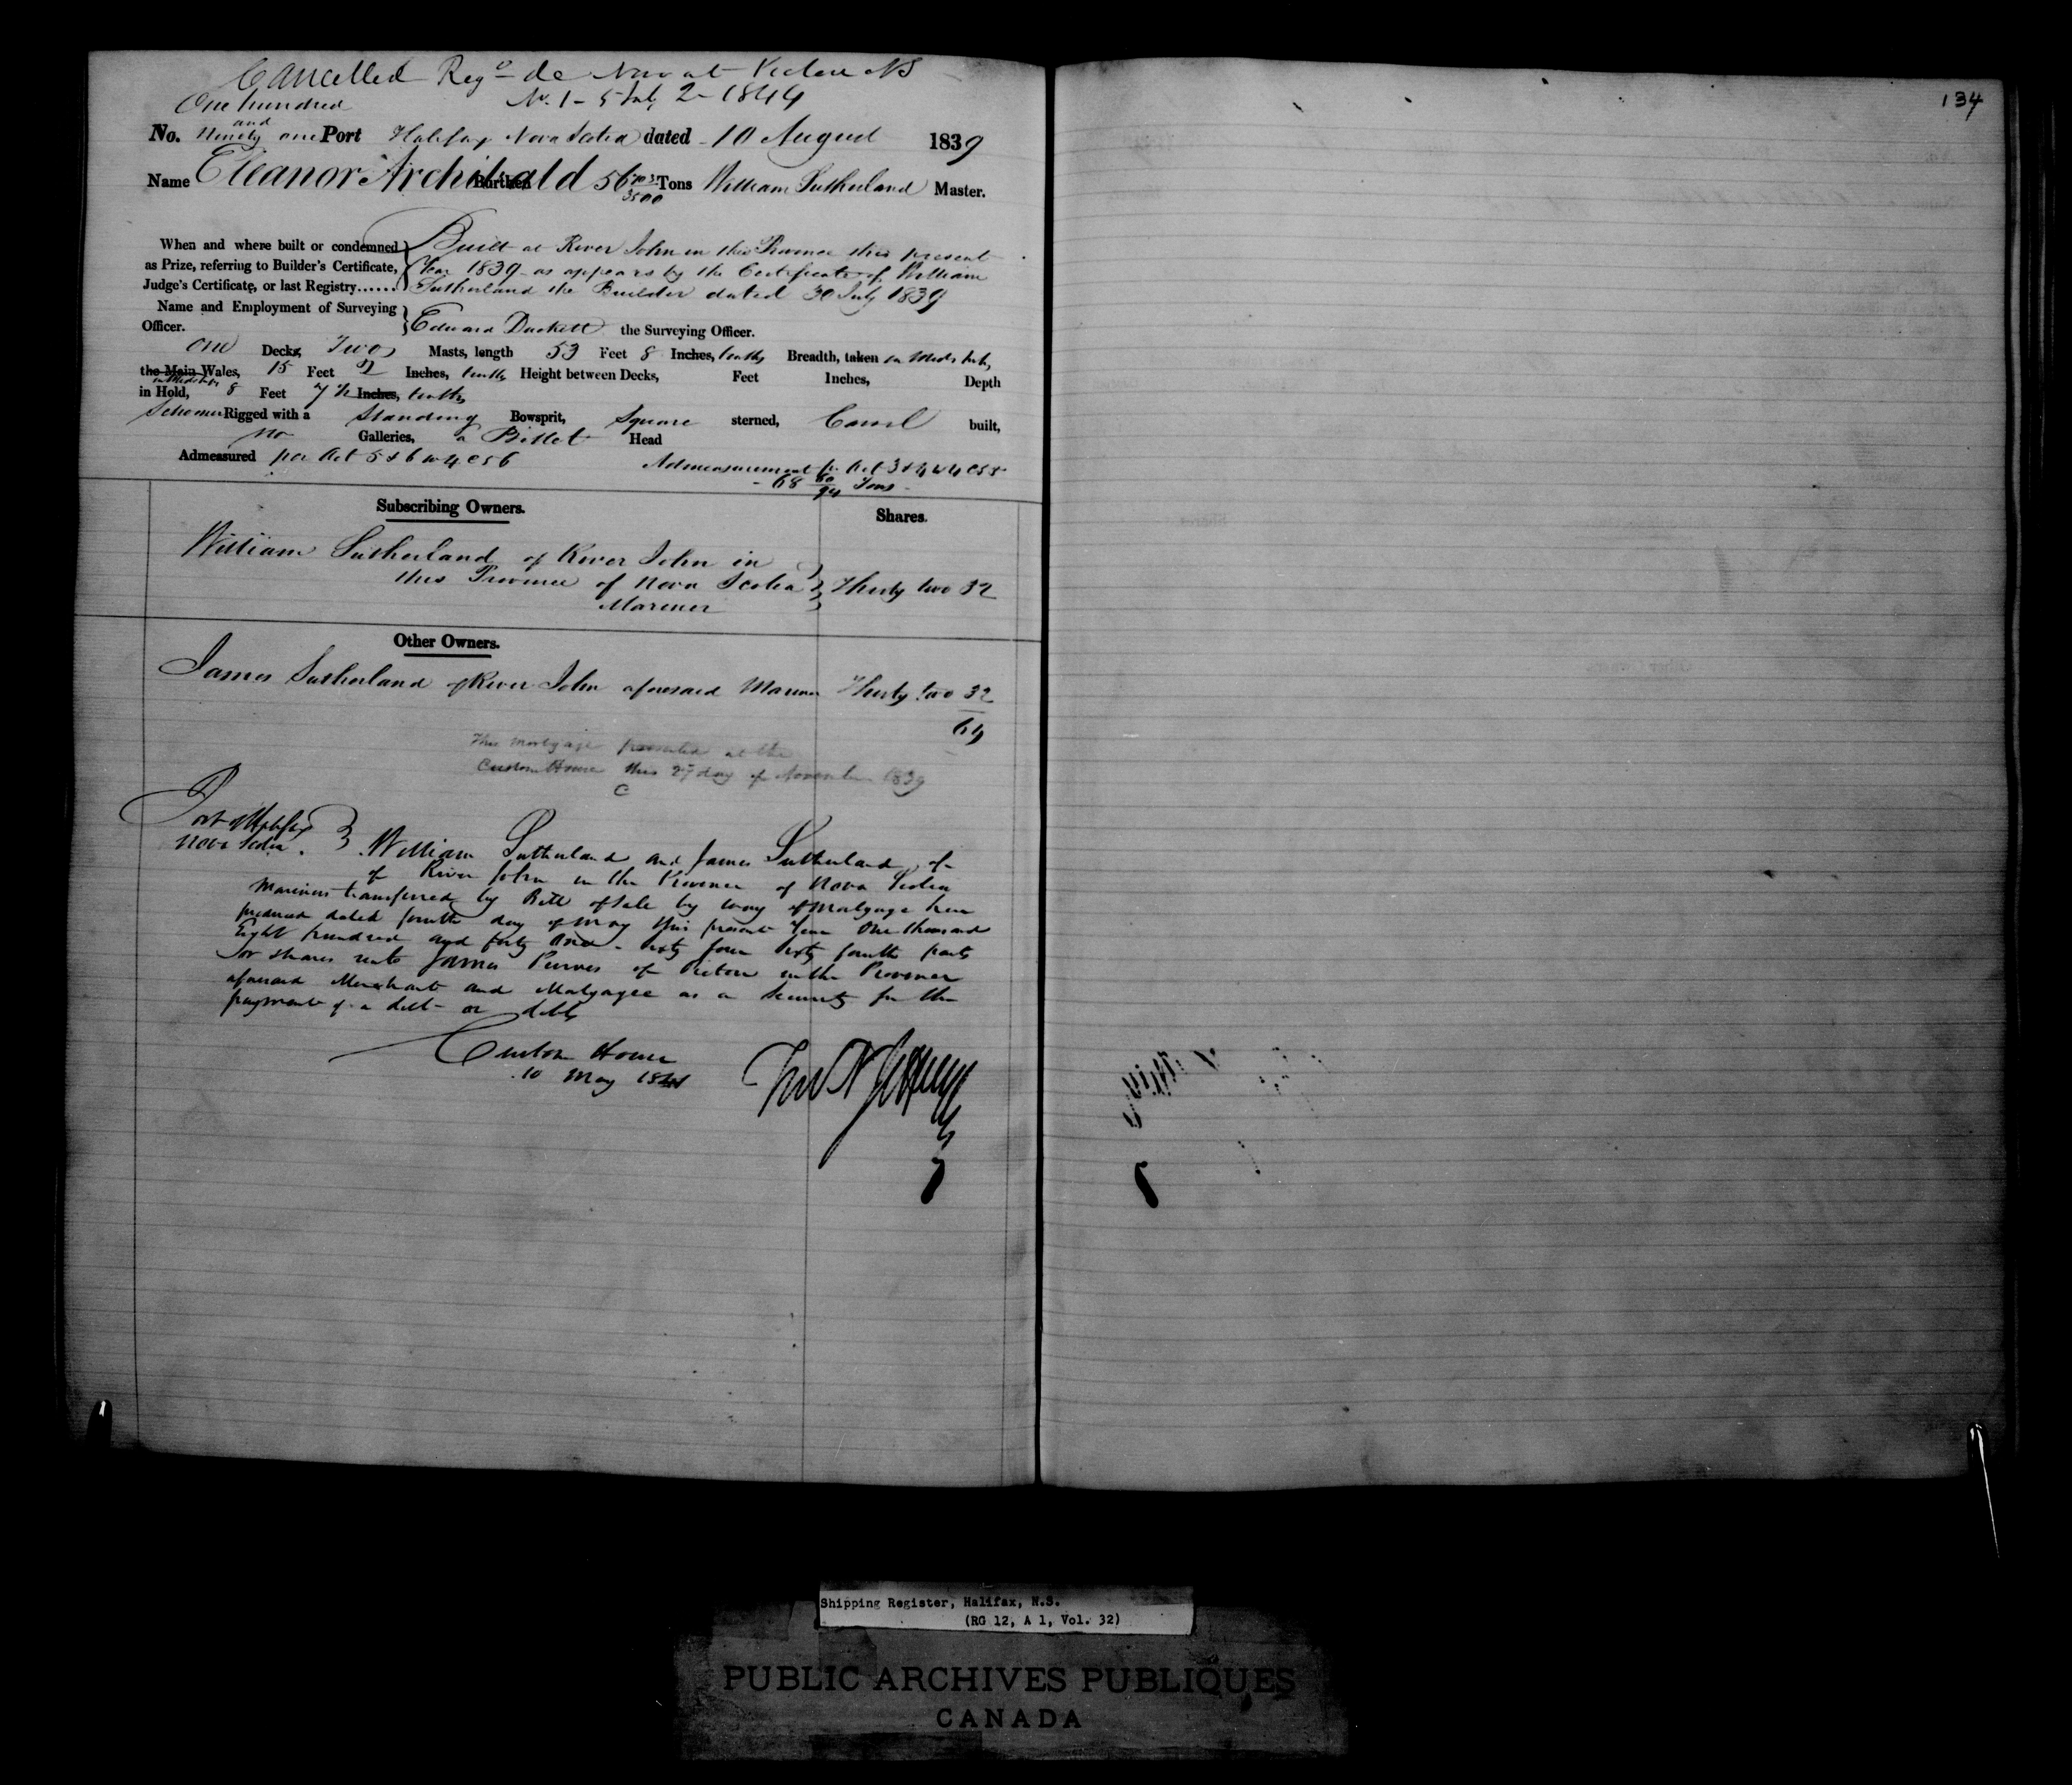 Cancelled Regd de Novo at Pictou NS
No. 1 - 5 July 2 - 1844
134
One hundred
and
No. Ninety one Port Halifax Nova Scotia dated 10 August 1839
Name Eleanor Archibald Burthen 56 Tons William Sutherland Master.
3500
When and where built or condemned Built at River John in this Province this present
as Prize, referring to Builder's Certificate, Year 1839 as appears by the Certificate of William
Judge's Certificate, or last Registry...... Sutherland the Builder dated 30 July 1839
Name and Employment of Surveying
Officer. Edward Duckett the Surveying Officer.
One Decks, Two Masts, length 53 Feet 8 Inches, tenths Breadth, taken in Midships
the Main Wales, 15 Feet 2 Inches, tenths Height between Decks, Feet Inches, Depth
in Midships
in Hold, 8 Feet Inches, tenths
Schooner Rigged with a Standing Bowsprit, Square sterned, Carvel built,
no Galleries, a Billet Head
Admeasured per Act 5 & 6 W 4 C 56 Admeasurement pr Act 3 & 4 W 4 C 55
68 80/94 Tons
Subscribing Owners. Shares.
William Sutherland of River John in
this Province of Nova Scotia Thirty two 32
Mariner
Other Owners.
James Sutherland of River John aforesaid Mariner Thirty two 32
64
This mortgage presented at the
Custom House this 27 day of November 1839
C
Port of Halifax
Nova Scotia. William Sutherland and James Sutherland of
of River John in the Province of Nova Scotia
Mariners transferred by Bill of Sale by way of Mortgage here
produced dated fourth day of May this present Year One thousand
Eight hundred and forty one - sixty four sixty fourth parts
or shares unto James Purves of Pictou in the Province
aforesaid Merchant and Mortgagee as a Security for the
payment of a debt or debts
Custom House
10 May 1841
Thos N Jeffery
Shipping Register, Halifax, N.S.
(RG 12, A 1, Vol. 32)
PUBLIC ARCHIVES PUBLIQUES
CANADA